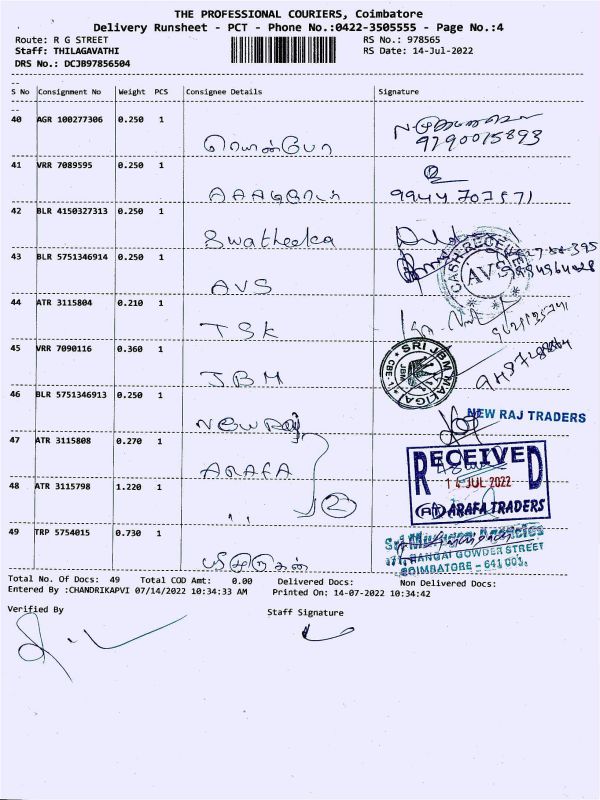 THE PROFESSIONAL COURIERS, Coimbatore
Delivery Runsheet - PCT - Phone No.:0422-3505555 - Page No.:4
Route: R G STREET
RS No.: 978565
Staff: THILAGAVATHI
RS Date: 14-Jul-2022
DRS No.: DCJB97856504
S No Consignment No Weight PCS Consignee Details Signature
40 AGR 100277306 0.250 1
9790015893
41 VRR 7089595 0.250 1
9944707571
42 BLR 4150327313 0.250 1
Swatheeka
43 BLR 5751346914 0.250 1
AVS
CASH RECEIVED
AVS
44 ATR 3115804 0.210 1
TSK
45 VRR 7090116 0.360 1
JBM
SRI JBM MALIGAI
JBM
CBE - 1
46 BLR 5751346913 0.250 1
New Raj
NEW RAJ TRADERS
47 ATR 3115808 0.270 1
ARAFA
RECEIVED
14 JUL 2022
AT ARAFA TRADERS
48 ATR 3115798 1.220 1
,, 2
49 TRP 5754015 0.730 1
முருகன்
Sri Murugan Agencies
RANGAI GOWDER STREET
COIMBATORE - 641 001.
Total No. Of Docs: 49 Total COD Amt: 0.00 Delivered Docs: Non Delivered Docs:
Entered By :CHANDRIKAPVI 07/14/2022 10:34:33 AM Printed On: 14-07-2022 10:34:42
Verified By Staff Signature